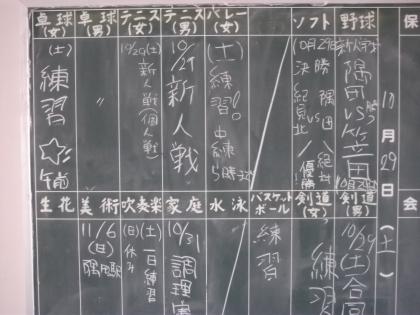 保
10月29日(土)
野球
隅田vs笠田
10月29日
ソフト
10月29日
決勝
隅田vs紀見北
優勝
バレー(女)
(土)練習。
テニス(男)
10/29
新人戦
テニス(女)
10/29(土)
新人戦(個人戦)
卓球(男)
〃
卓球(女)
(土)練習☆午前
会
剣道(男)
10/29(土)合同
剣道(女)
練習
バスケットボール
練習
水泳
家庭
10/31
調理実
吹奏楽
(土)一日練習
(日)休み
美術
11/6(日)
生花